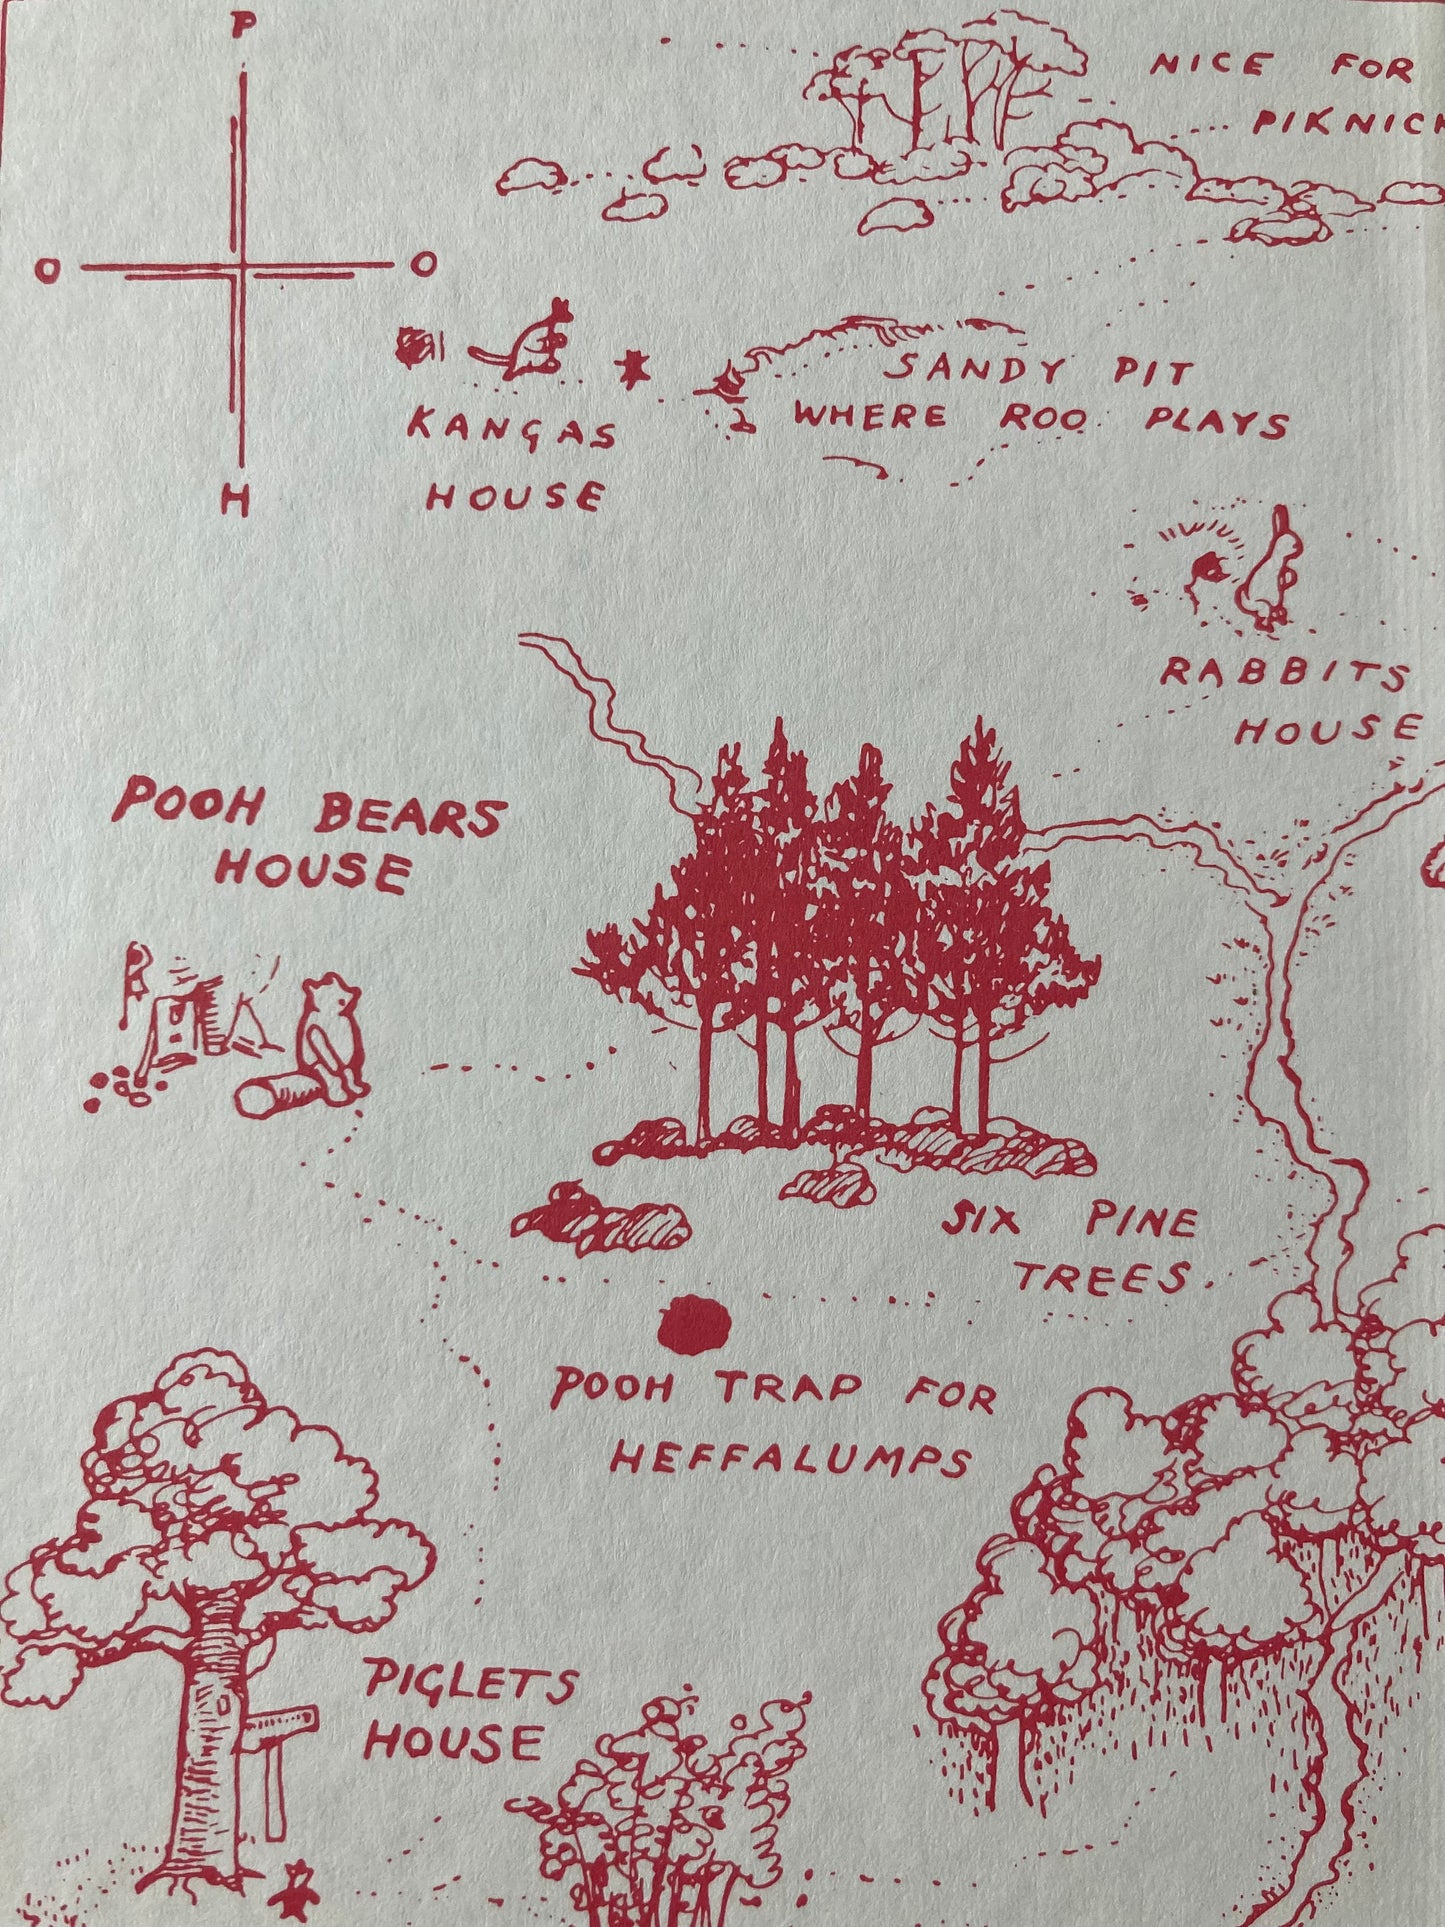 P
NICE FOR
PIKNICK
O O
SANDY PIT
WHERE ROO PLAYS
KANGAS
HOUSE
H
RABBITS
HOUSE
POOH BEARS
HOUSE
SIX PINE
TREES
POOH TRAP FOR
HEFFALUMPS
PIGLETS
HOUSE